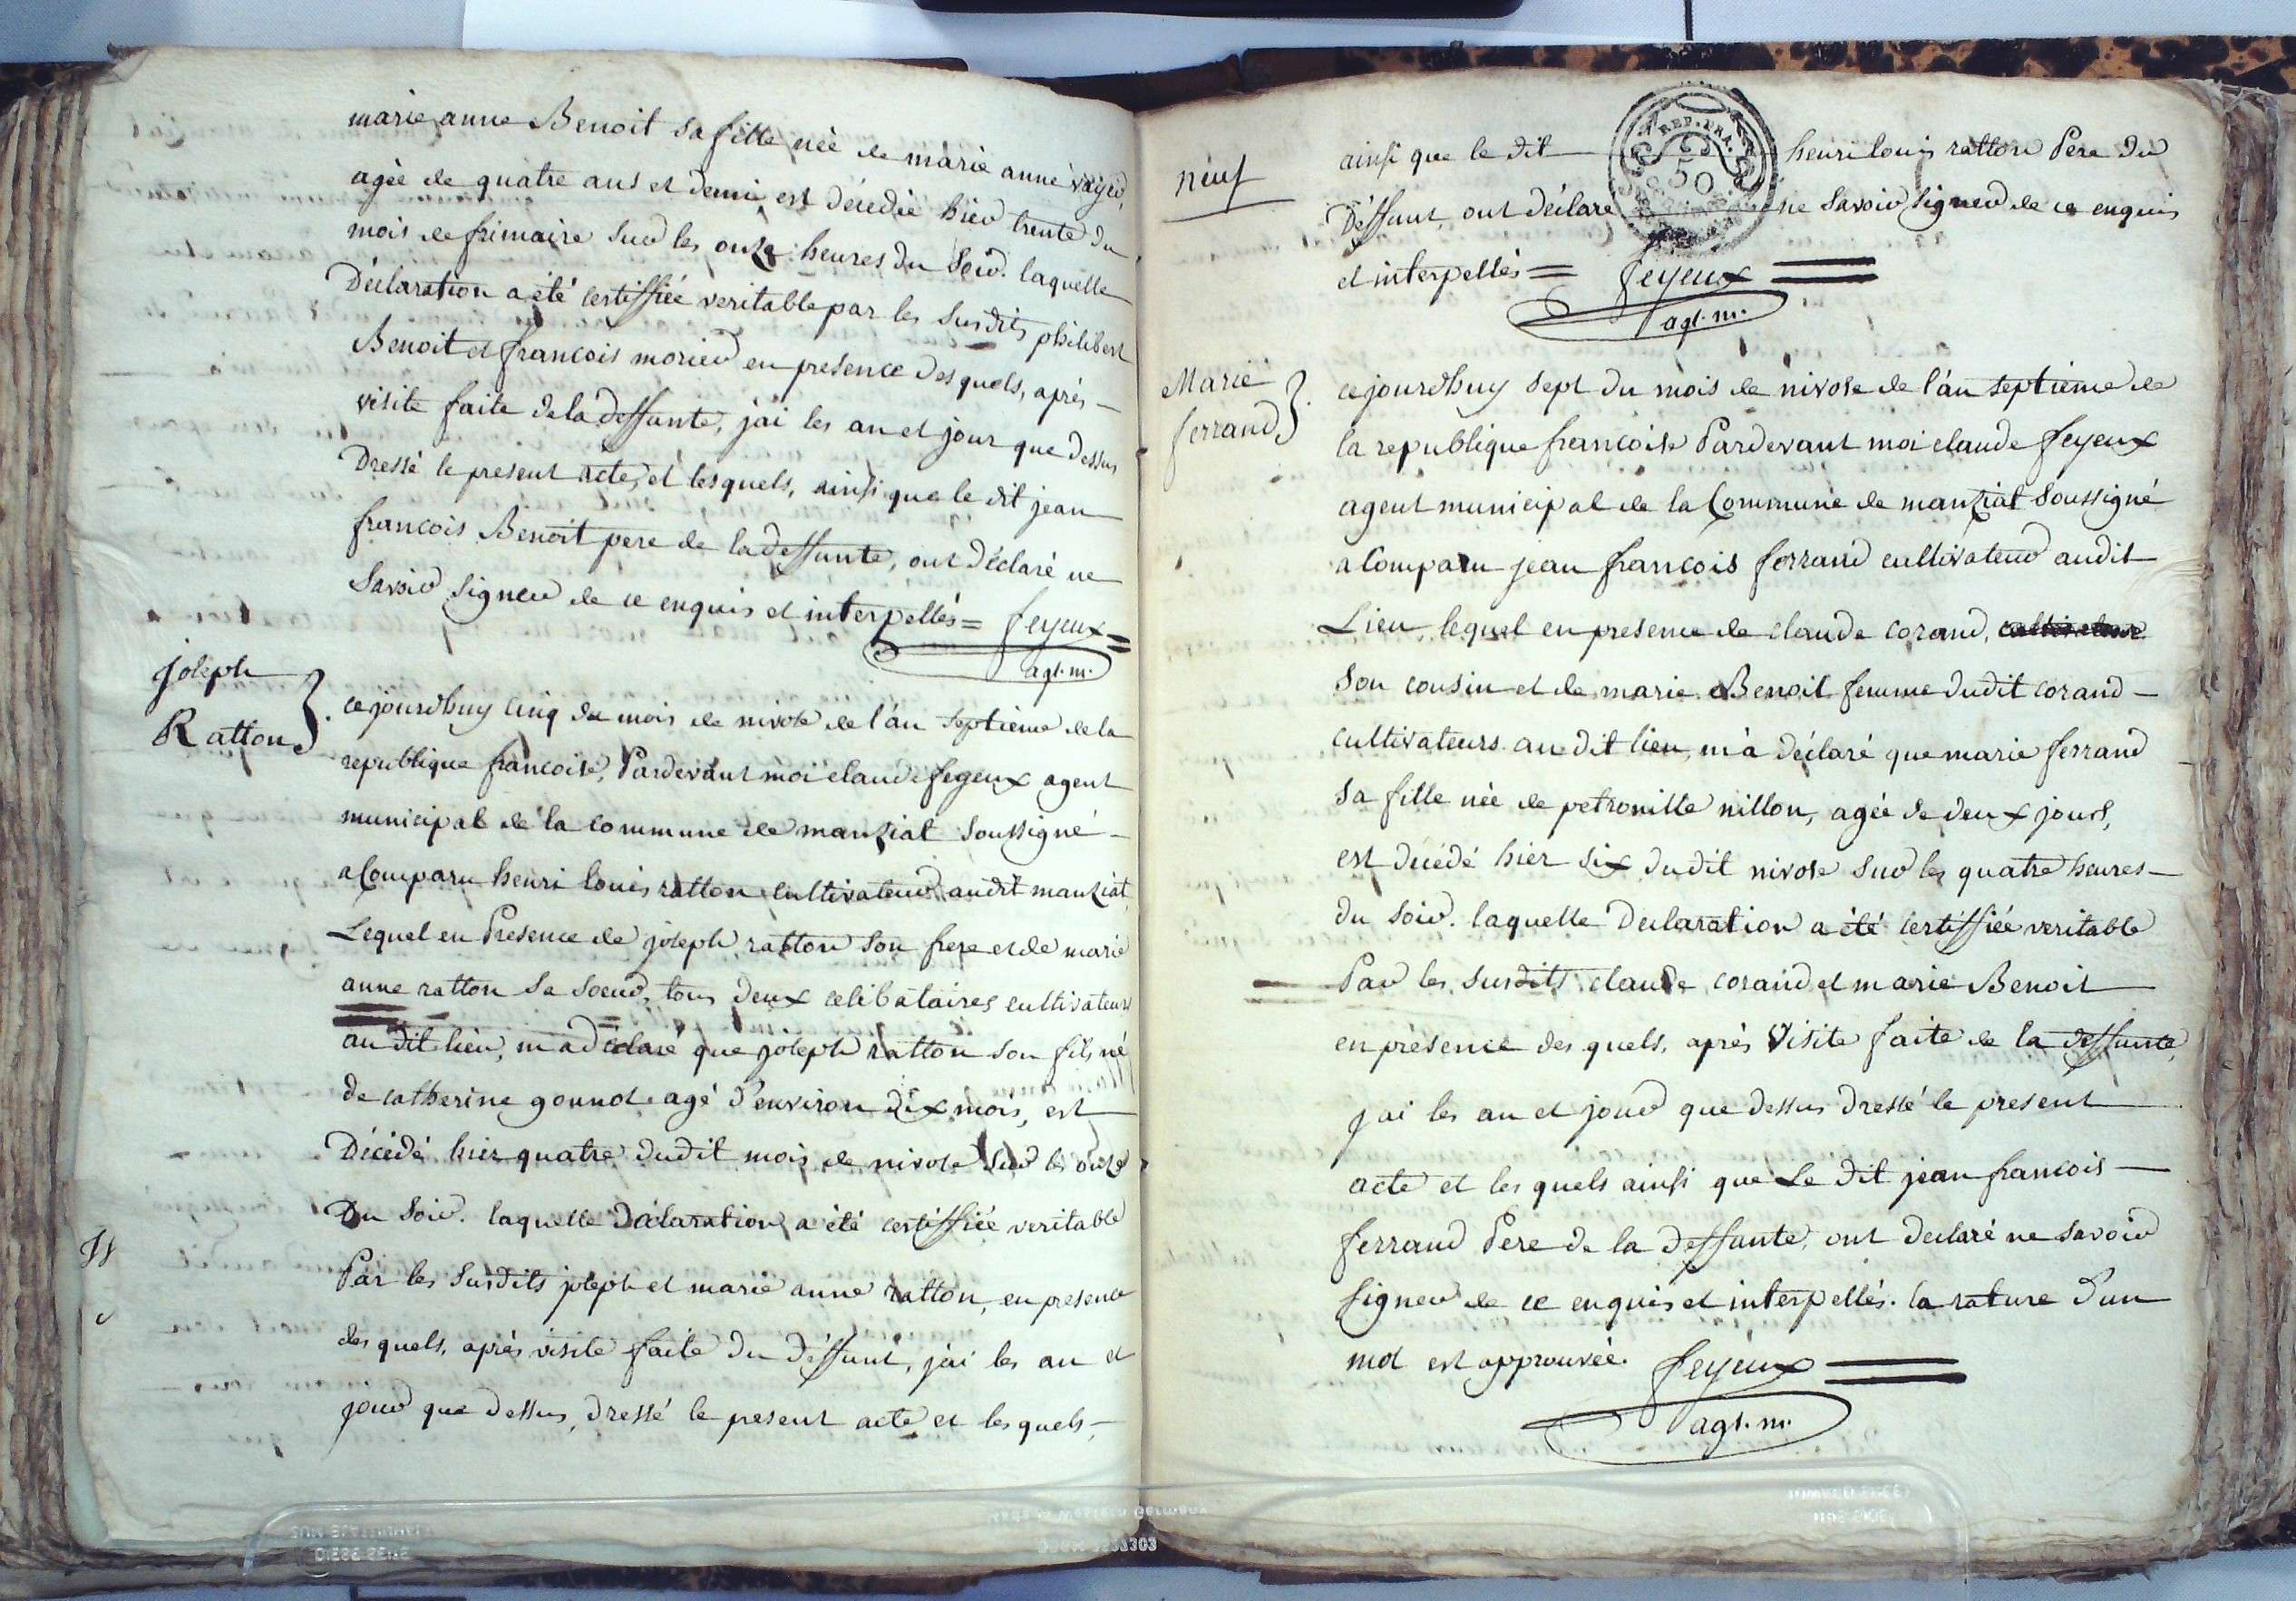 marie anne Benoit sa fille née de marie anne
agée de quatre ans et demi est décedée hier trente du
mois de frimaire sur les onze heures du soir. laquelle
Déclaration a été certiffiée veritable par les susdits philibert
Benoit et francois morier en presence desquels, après
visite faite de la deffunte, j'ai les an et jour que dessus
Dressé le present acte, et lesquels, ainsi que le dit jean
francois Benoit pere de la deffunte, ont déclaré ne
savoir signer de ce enquis et interpellés = feyeux =
agt. m.
joseph
Ratton
cejourdhuy cinq du mois de nivose de l'an septieme de la
republique francoise, Pardevant moi claude feyeux agent
municipal de la commune de manziat soussigné
a Comparu henri louis ratton cultivateur audit manziat
Lequel en Presence de joseph ratton son frere et de marie
anne ratton sa soeur, tous deux celibataires cultivateurs
au dit lieu, m'a déclaré que joseph ratton son fils né
de catherine gounod agé d'environ dix mois, est
Décédé hier quatre dudit mois de nivose sur les onze
Du soir. laquelle Déclaration a été certiffiée veritable
Par les susdits joseph et marie anne ratton, en presence
des quels, après visite faite du deffunt, j'ai les an et
jour que dessus, dressé le present acte et les quels,
neuf
ainsi que le dit henri louis ratton Pere du
Déffunt, ont déclaré ne savoir signer de ce enquis
et interpellés = feyeux
agt. m.
REP. FRA.
50
Marie
ferrand
cejourdhuy sept du mois de nivose de l'an septieme de
la republique francoise Pardevant moi claude feyeux
agent municipal de la Commune de manziat soussigné
a Comparu jean francois ferrand cultivateur audit
Lieu, lequel en presence de claude corand, cultivateur
son cousin et de marie Benoit femme dudit corand
cultivateurs au dit lieu, m'a déclaré que marie ferrand
sa fille née de petronille nillon, agée de deux jours,
est décédé hier six dudit nivose sur les quatre heures
du soir. laquelle Declaration a été certiffiée veritable
Par les susdits claude corand et marie Benoit
en présence des quels, après visite faite de la deffunte,
j'ai les an et jour que dessus dressé le present
acte et les quels ainsi que Le dit jean francois
ferrand Pere de la deffunte, ont declaré ne savoir
signer de ce enquis et interpellés. la rature d'un
mot est approuvée. feyeux
agt. m.